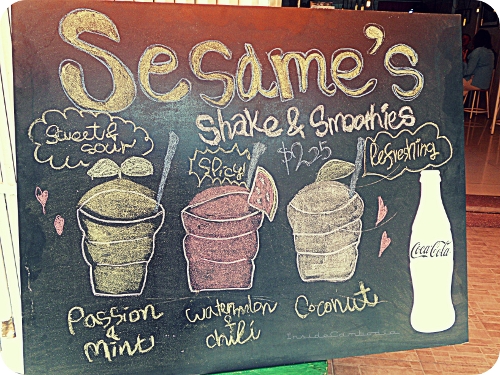 Sesame's
Shake & Smoothies
Sweet &
sour
Spicy
$2.25
Refreshing
Coca-Cola
Passion
&
Mint
Watermelon
&
chili
Coconut
InsideCambodia